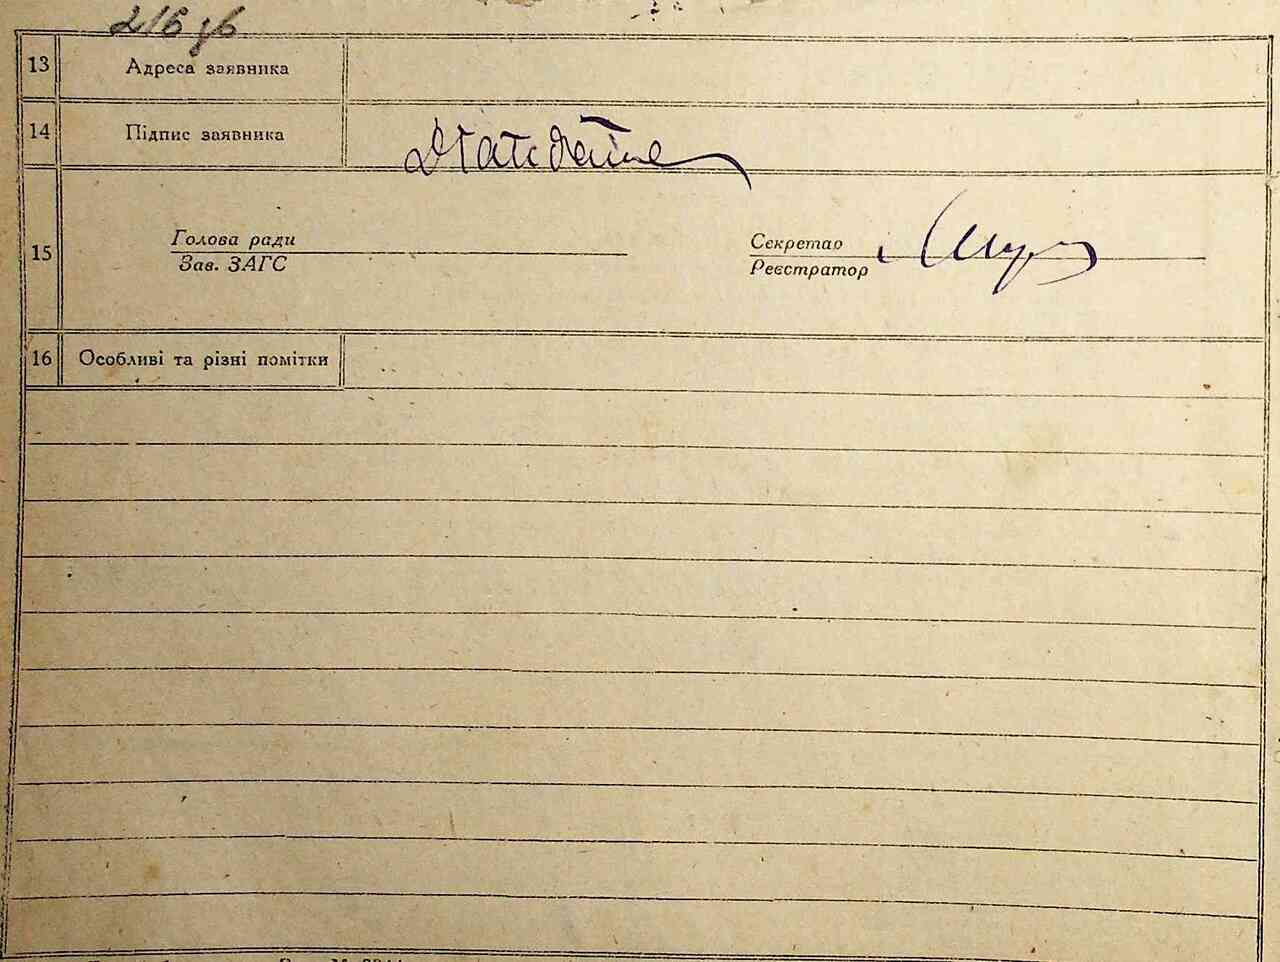 216 зв
13 Адреса заявника
14 Підпис заявника
15
Голова ради
Зав. ЗАГС
Секретар
Реєстратор
16 Особливі та різні помітки